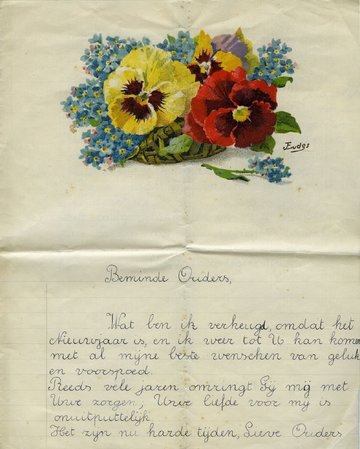 Beminde Ouders,
Wat ben ik verheugd, omdat het
Nieuwjaar is, en ik weer tot U kan komen
met al mijne beste wenschen van geluk
en voorspoed.
Reeds vele jaren omringt Gij mij met
Uwe zorgen, Uwe liefde voor mij is
onuitputtelijk
Het zijn nu harde tijden, Lieve Ouders